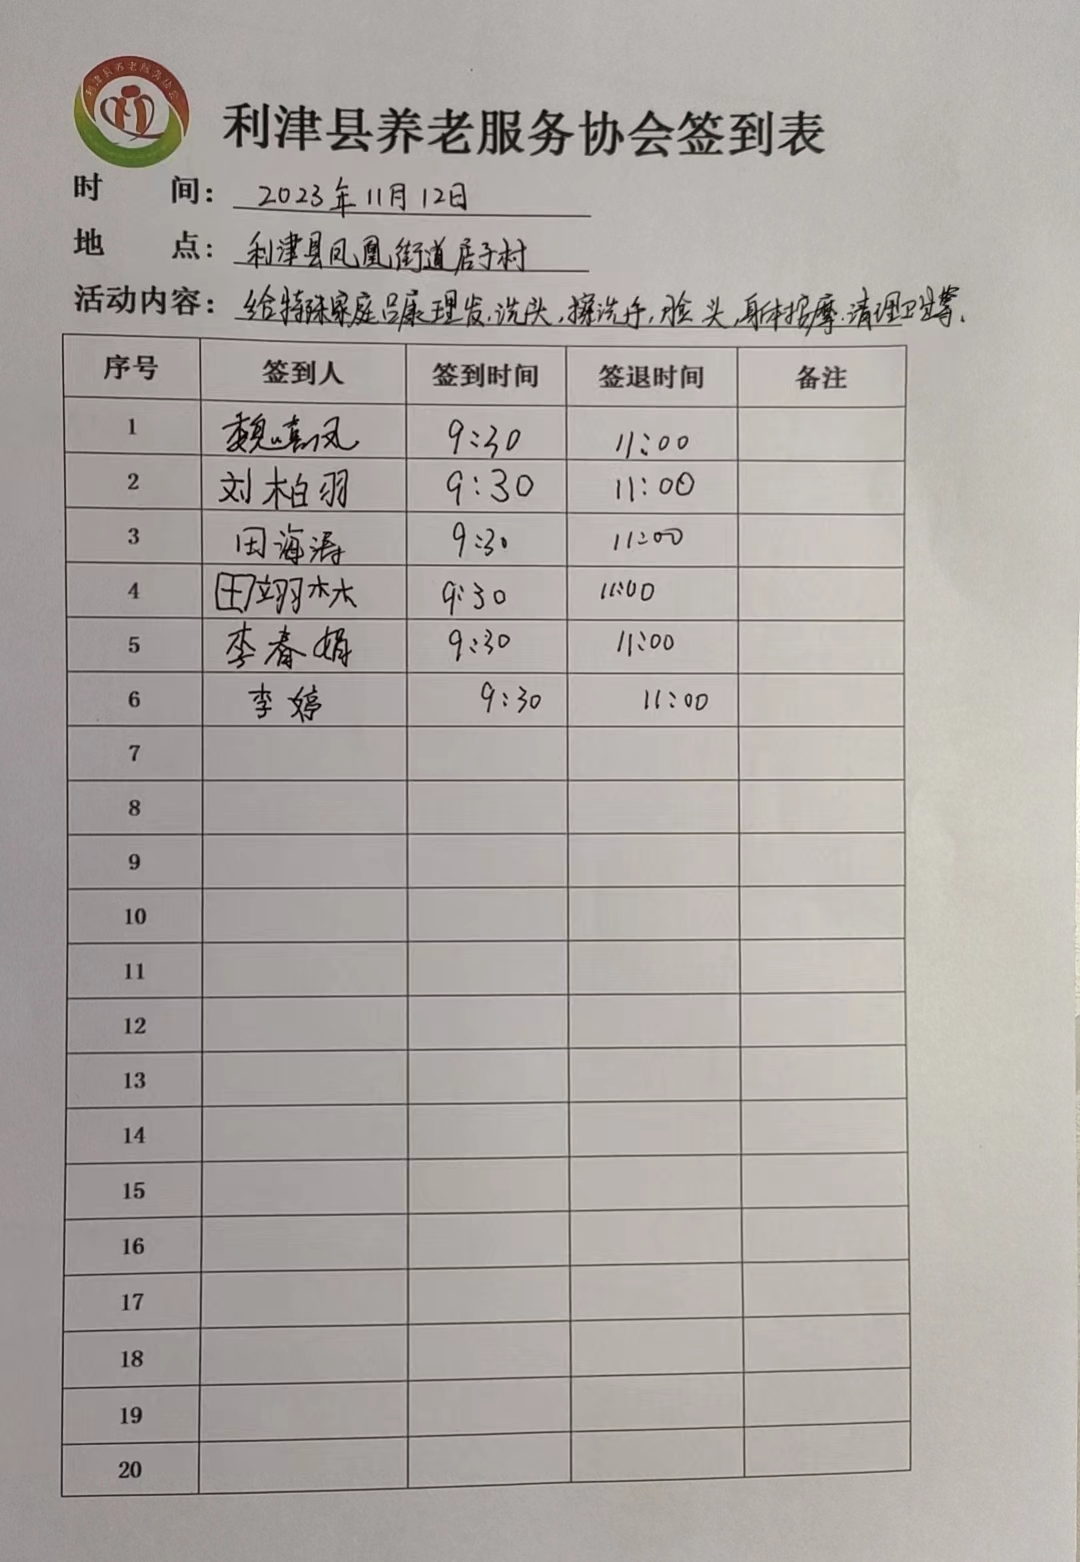 利津县养老服务协会
利津县养老服务协会签到表
时 间：2023年11月12日
地 点：利津县凤凰街道居子村
活动内容：给特殊家庭吕康理发.洗头,擦洗手,脸 头,身体按摩.清理卫生等.
序号 签到人 签到时间 签退时间 备注
1 魏嘻凤 9:30 11:00
2 刘柏羽 9:30 11:00
3 田海涛 9:30 11:00
4 田翊林 9:30 11:00
5 李春娟 9:30 11:00
6 李婷 9:30 11:00
7
8
9
10
11
12
13
14
15
16
17
18
19
20